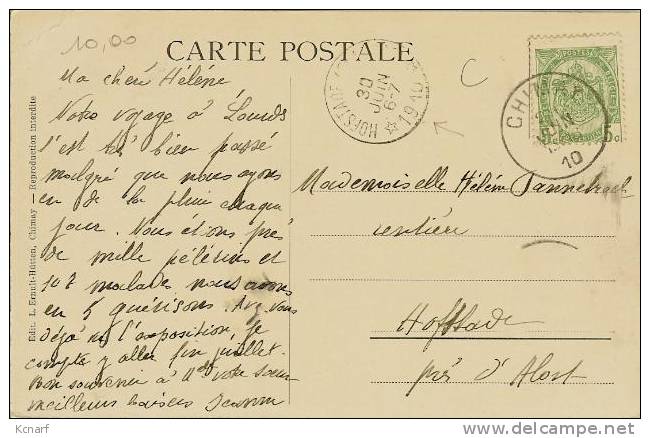 10,00
CARTE POSTALE
C
Ma chère Hélène
Notre voyage à Lourds
s'est très bien passé
malgré que nous ayons
eu de la pluie chaque
jour. Nous étions près
de mille pélérins et
107 malades nous avons
eu 5 guérisons. Avez vous
déjà vu l'exposition, je
compte y aller fin juillet.
Bon souvenir à Melle votre sœur
meilleurs baisers Jeanne
Edit. L. Ernult-Hütten, Chimay — Reproduction interdite
HOFSTADE
30
JUIN
6-7
1910
CHIMAY
JUIN
10
5 c
Mademoiselle Hélène
rentière
Hofstade
près d'Alost
Kcnarf
www.delcampe.net